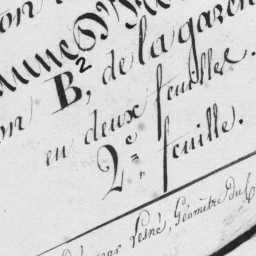 on
B², de la garen
en deux feuilles.
2.e feuille.
par Lesné, Géomètre du C